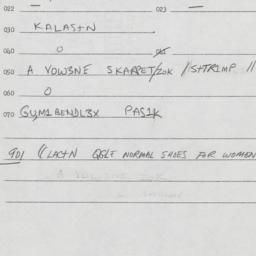 022 — 023 —
030 KALAS+N
040 O
050 A VOW3NE SKARPET/ZOK /S+TR1MP //
060 O
070 GUM1BENDL3X PAS1K
901 ((LAC+N QELT NORMAL SHOES FOR WOMEN